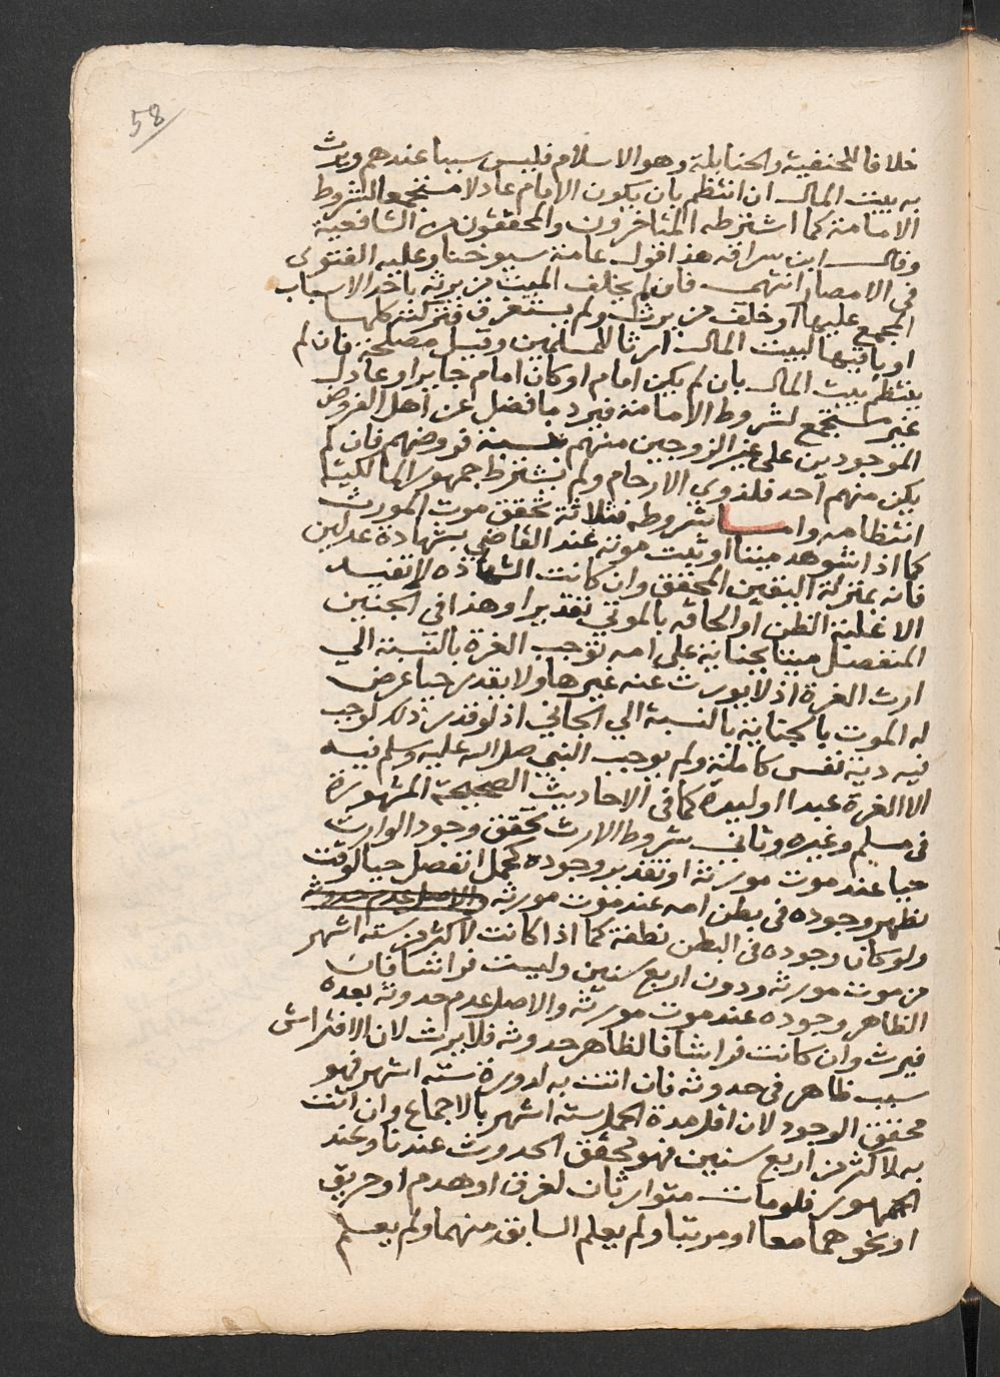 58
خلافا للحنفية والحنابلة وهو الاسلام فليس سببا عندهم ويرث
به بيت المال ان انتظم بان يكون الامام عادلا مستجمعا لشروط
الامامة كما اشترطه المتاخرون والمحققون من الشافعية
وقال ابن سراقه هذا قول عامة سيوخنا وعليه الفتوى
في الامصار انتهى فان لم يخلف الميت من يرثه باخد الاسباب
المجمع عليها او خلف من يرث ولم يستغرق فتركته كلها
او باقيها لبيت المال ارثا للمسلمين وقيل مصلحة فان لم
ينتظم بيت المال بان لم يكن امام او كان امام جايرا او عادل
غير مستجمع لشروط الامامة فيرد ما فضل عن اهل الفروض
الموجودين على غير الزوجين منهم بنسبة فروضهم فان لم
يكن منهم احد فلذوي الارحام ولم يشترط جمهور المالكية
انتظامه واما شروطه فثلاثة تحقق موت المورث
كما اذا شوهد ميتا او ثبت موته عند القاضي بشهادة عدلين
فانه بمنزلة اليقين المحقق وان كانت الشهاده لا تفيد
الا غلبة الظن او الحاقه بالموتى تقديرا وهذا في الجنين
المنفصل ميتا بجناية على امه توجب الغرة بالنسبة الي
ارث الغرة اذ لا يورث عنه غيرها ولا يقدر حيا عرض
له الموت بالجناية بالنسبة الي الجاني اذ لو قدر ذلك لوجب
فيه دية نفس كاملة ولم يوجب النبي صلى الله عليه وسلم فيه
الا الغرة عبدا او وليدة كما في الاحاديث الصحيحة المشهورة
في مسلم وغيره وثاني شروط الارث تحقق وجود الوارث
حيا عند موت مورثه او تقدير وجوده كحمل انفصل حيا لوقت
يظهر وجوده في بطن امه عند موت مورثه والاصل عدم حدوثه
ولو كان وجوده في البطن نطفة كما اذا كانت لاكثر من سته اشهر
من موت مورثه ودون اربع سنين وليست فراشا فان
الظاهر وجوده عند موت مورثه والاصل عدم حدوثه بعده
فيرث وان كانت فراشا فالظاهر حدوثه فلا يرث لان الافتراش
سبب ظاهر في حدوثه فان اتت به لدون سته اشهر فهو
محقق الوجود لان اقل مدة الحمل سته اشهر بالاجماع وان اتت
به لاكثر من اربع سنين فهو محقق الحدوث عندنا وعند
الجمهور فلو مات متوارثان لغرق او هدم او حريق
او نحوهما معا او مرتبا ولم يعلم السابق منهما ولم يعلم